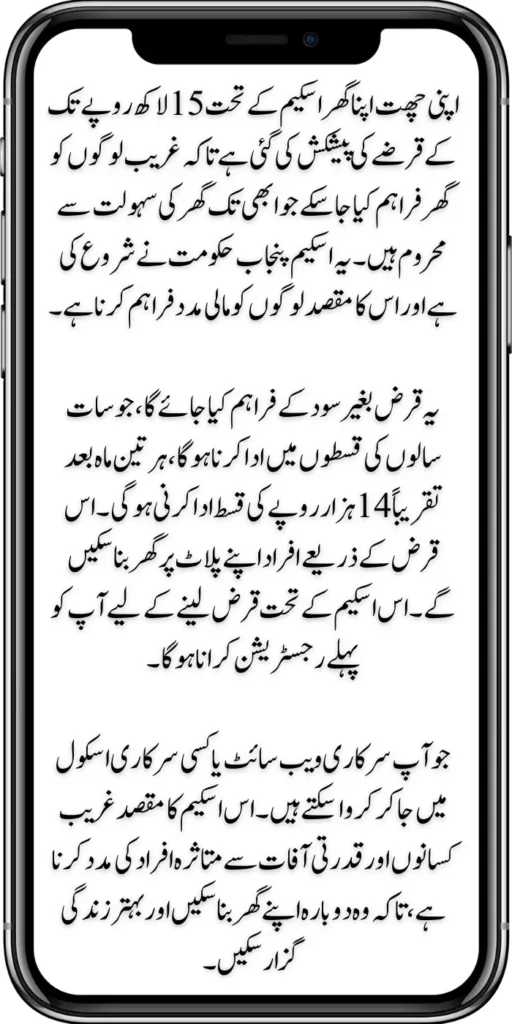 اپنی چھت اپنا گھر اسکیم کے تحت 15 لاکھ روپے تک
کے قرضے کی پیشکش کی گئی ہے تاکہ غریب لوگوں کو
گھر فراہم کیا جا سکے جو ابھی تک گھر کی سہولت سے
محروم ہیں۔ یہ اسکیم پنجاب حکومت نے شروع کی
ہے اور اس کا مقصد لوگوں کو مالی مدد فراہم کرنا ہے۔
یہ قرض بغیر سود کے فراہم کیا جائے گا، جو سات
سالوں کی قسطوں میں ادا کرنا ہو گا، ہر تین ماہ بعد
تقریباً 14 ہزار روپے کی قسط ادا کرنی ہو گی۔ اس
قرض کے ذریعے افراد اپنے پلاٹ پر گھر بنا سکیں
گے۔ اس اسکیم کے تحت قرض لینے کے لیے آپ کو
پہلے رجسٹریشن کرانا ہو گا۔
جو آپ سرکاری ویب سائٹ یا کسی سرکاری اسکول
میں جا کر کروا سکتے ہیں۔ اس اسکیم کا مقصد غریب
کسانوں اور قدرتی آفات سے متاثرہ افراد کی مدد کرنا
ہے، تاکہ وہ دوبارہ اپنے گھر بنا سکیں اور بہتر زندگی
گزار سکیں۔